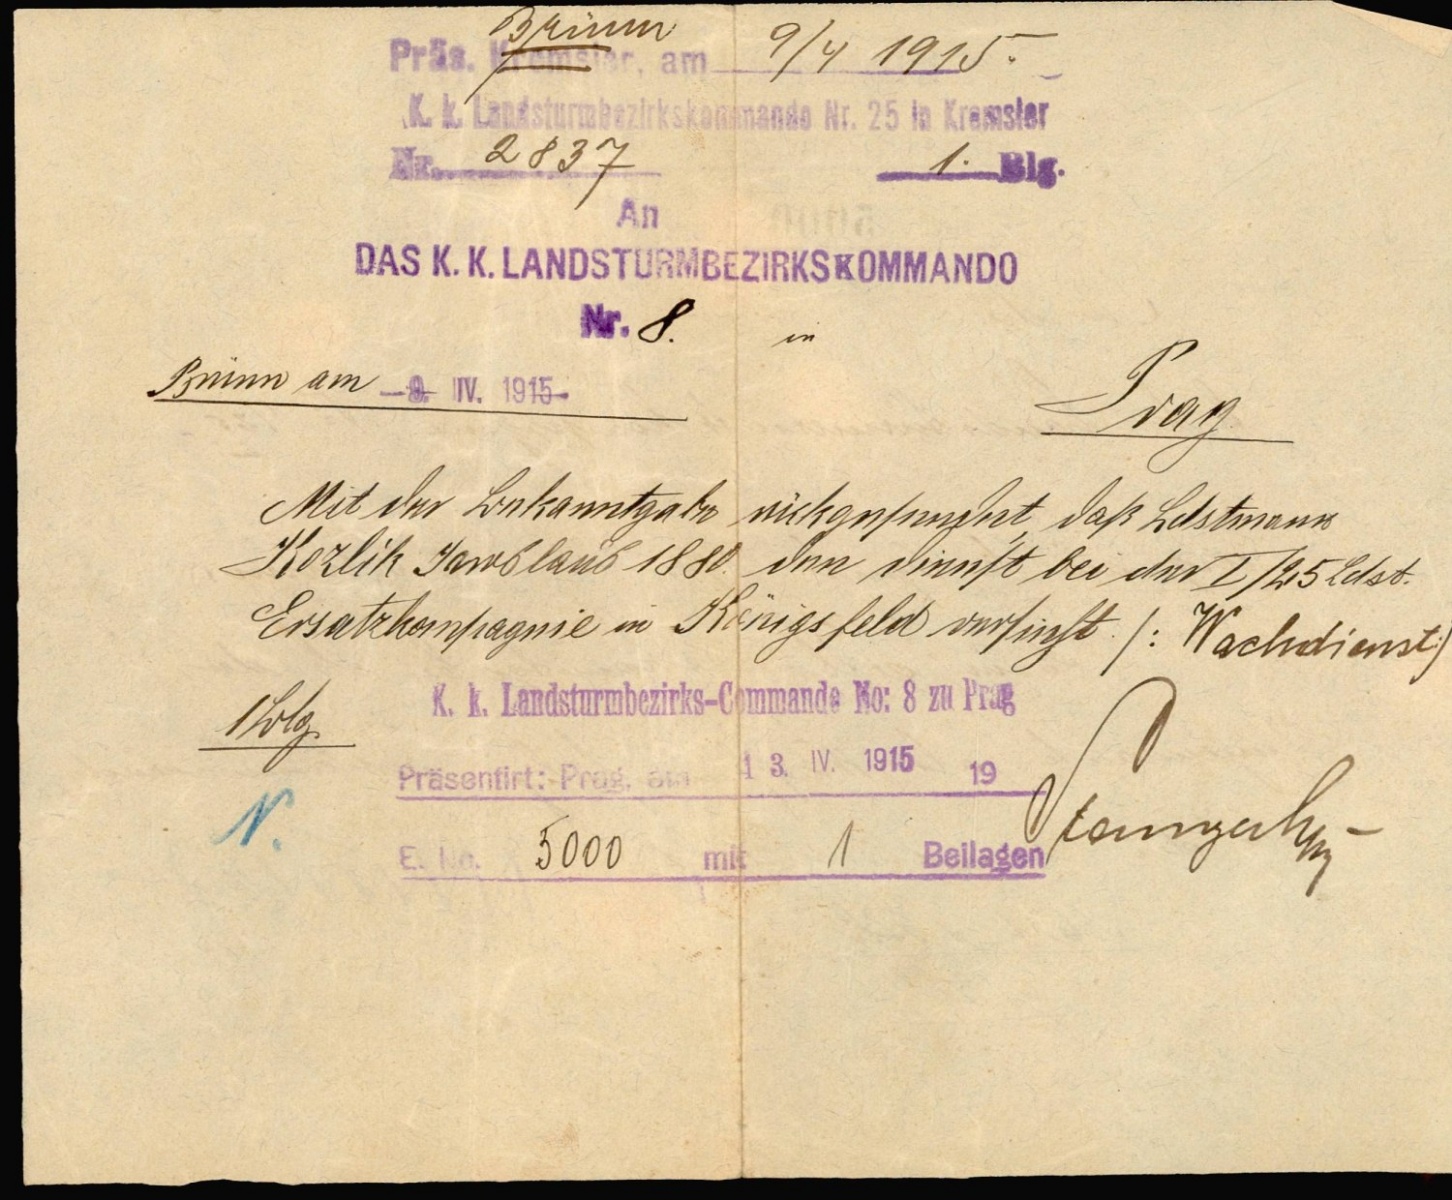 Brünn
Präs. Kremsier, am 9/4 1915.
K. k. Landsturmbezirkskommando Nr. 25 in Kremsier
Nr. 2837 1. Blg.
An
DAS K. K. LANDSTURMBEZIRKSKOMMANDO
Nr. 8. in
Prag
Brünn am -9. IV. 1915-
Mit der Bekanntgabe rückgesendet, daß Ldstmann
Kozlik Jaroslaus 1880. den Dienst bei der I/25 Ldst.
Ersatzkompagnie in Königsfeld versieht. /: Wachdienst:/
1 Blg.
K. k. Landsturmbezirks-Commando No: 8 zu Prag
Präsentirt: Prag, am 13. IV. 1915 19
N.
E. No. 5000 mit 1 Beilagen